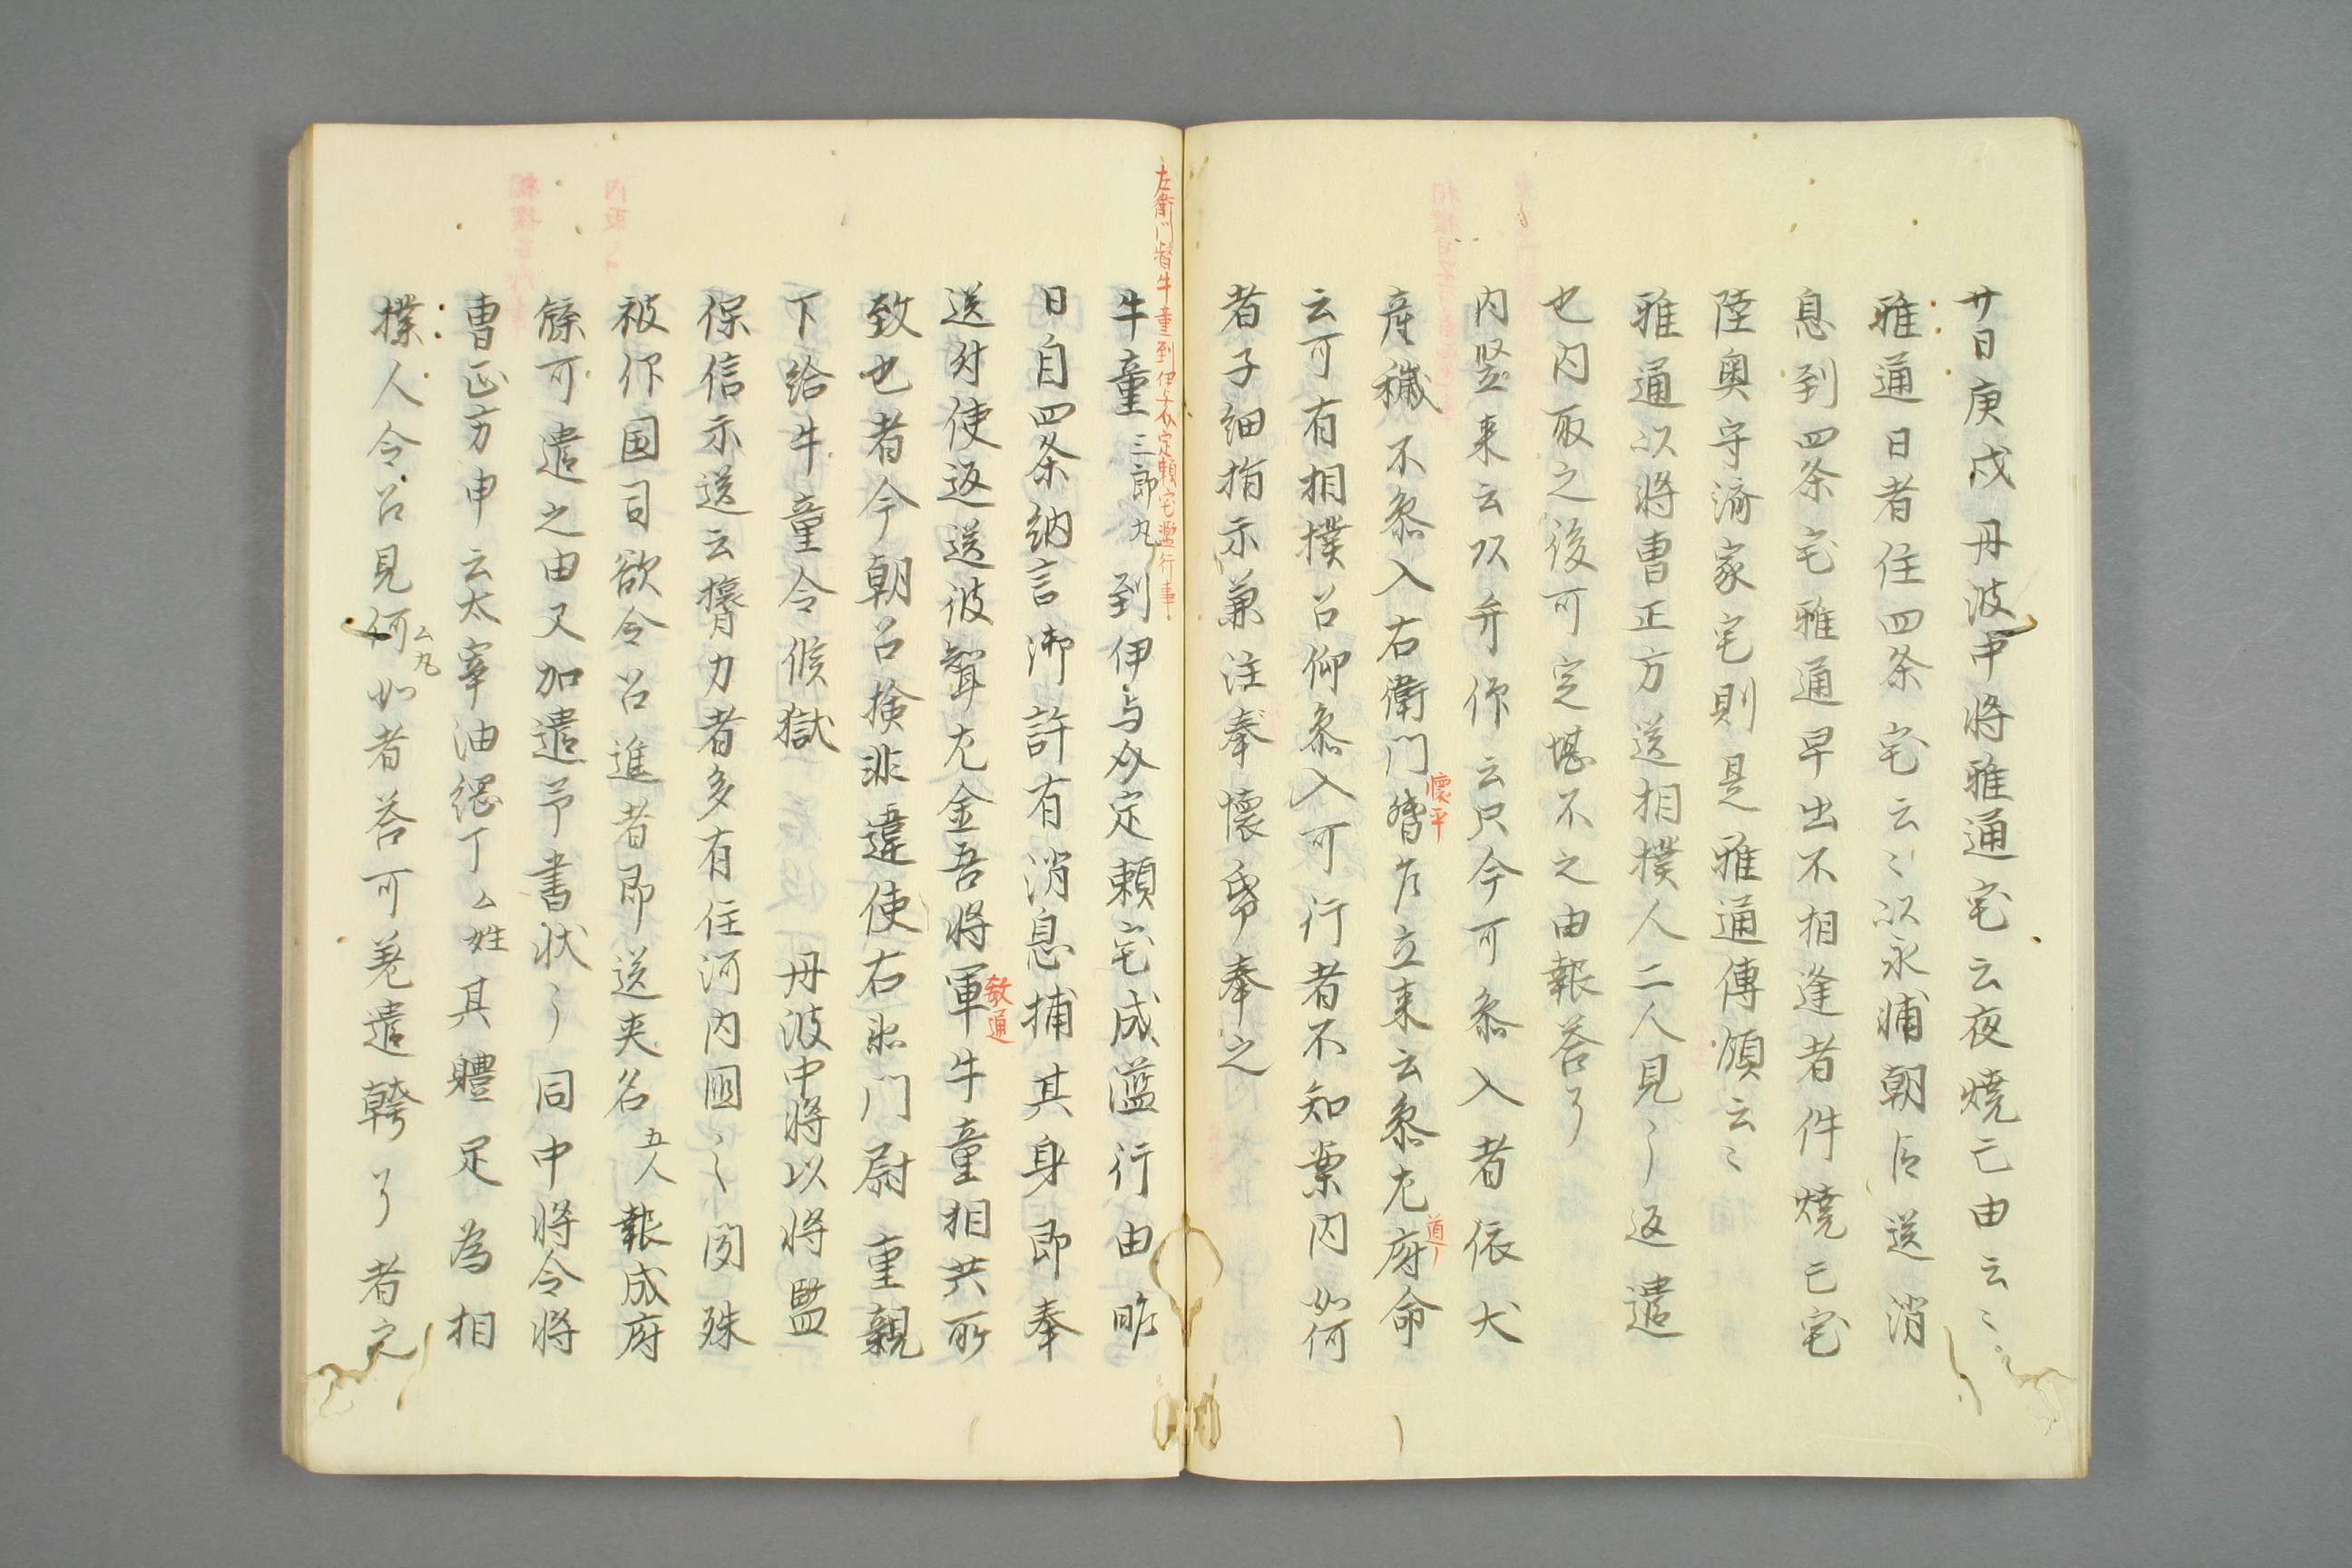 廿日庚戌丹波中将雅通宅云夜焼亡由云〻
雅通日者住四条宅云〻以永浦朝臣送消
息到四条宅雅通早出不相逢者件焼亡宅
陸奥守済家宅則是雅通傳領云〻
雅通以将曹正方送相撲人二人見〻返遣
也内取之後可定堪不之由報答了
内竪来云以弁作云只今可参入者依犬
産穢不参入右衛門督
懐平
立来云参左府命
道〻
云可有相撲召仰参入可行者不知案内如何
者子細指示兼注奉懐紙奉之
左衛門督牛童到伊与介定頼宅濫行事
牛童三郎丸到伊与介定頼宅成濫行由昨
日自四条納言御許有消息捕其身即奉
送付使返送彼聟左金吾将軍
教通
牛童相共所
致也者今朝召検非違使右衛門尉重親
下給牛童令候獄 丹波中将以将監
保信示送云膂力者多有住河内国〻聞殊
被作国司欲令召進者即送夾名五人報成府
牒可遣之由又加遣予書状〻同中将令将
曹正方申云太宰油絁丁ム姓其軆足為相
撲人令召見何如者
ム丸
答可差遣
了者